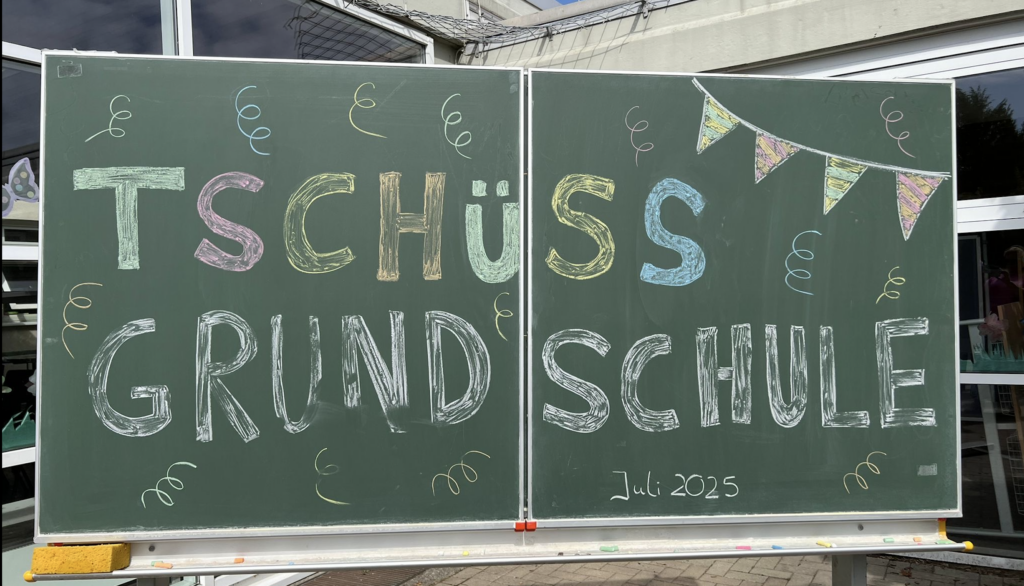 TSCHÜSS
GRUNDSCHULE
Juli 2025